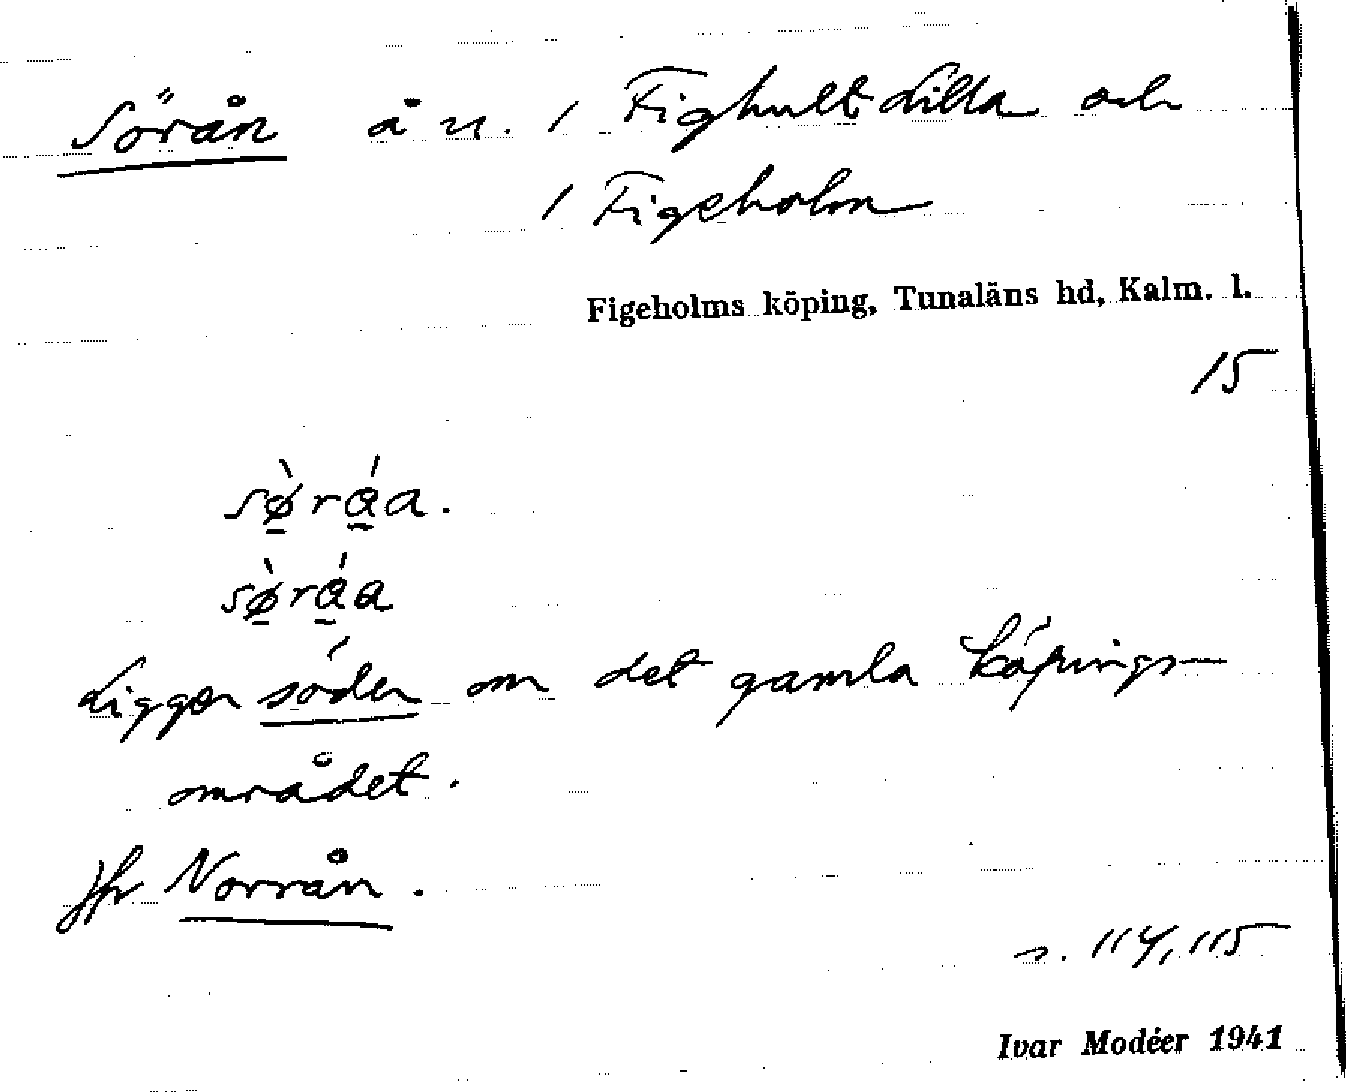 Sörån å u. / Fighult Lilla och
/ Figeholm
Figeholms köping, Tunaläns hd, Kalm. l.
15
sø̀ráa.
sø̀ráa
Ligger söder om det gamla köpings-
området.
Jfr Norrån.
s. 114, 115
Ivar Modéer 1941